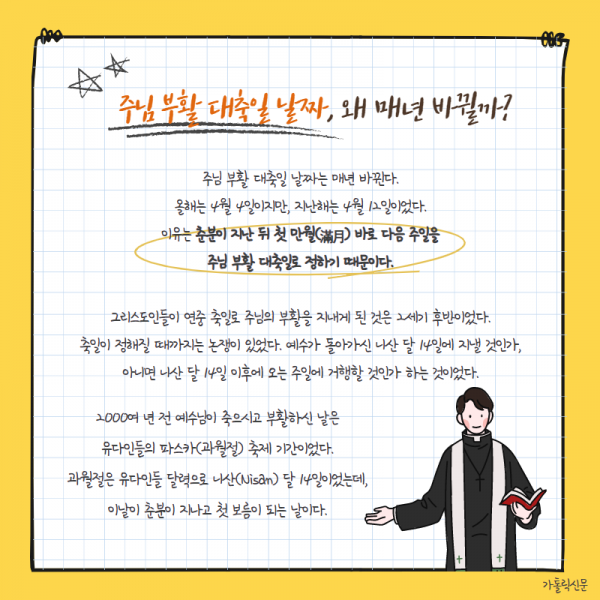 주님 부활 대축일 날짜, 왜 매년 바뀔까?
주님 부활 대축일 날짜는 매년 바뀐다.
올해는 4월 4일이지만, 지난해는 4월 12일이었다.
이유는 춘분이 지난 뒤 첫 만월(滿月) 바로 다음 주일을
주님 부활 대축일로 정하기 때문이다.
그리스도인들이 연중 축일로 주님의 부활을 지내게 된 것은 2세기 후반이었다.
축일이 정해질 때까지는 논쟁이 있었다. 예수가 돌아가신 니산 달 14일에 지낼 것인가,
아니면 니산 달 14일 이후에 오는 주일에 거행할 것인가 하는 것이었다.
2000여 년 전 예수님이 죽으시고 부활하신 날은
유다인들의 파스카(과월절) 축제 기간이었다.
과월절은 유다인들 달력으로 니산(Nisân) 달 14일이었는데,
이날이 춘분이 지나고 첫 보름이 되는 날이다.
가톨릭신문